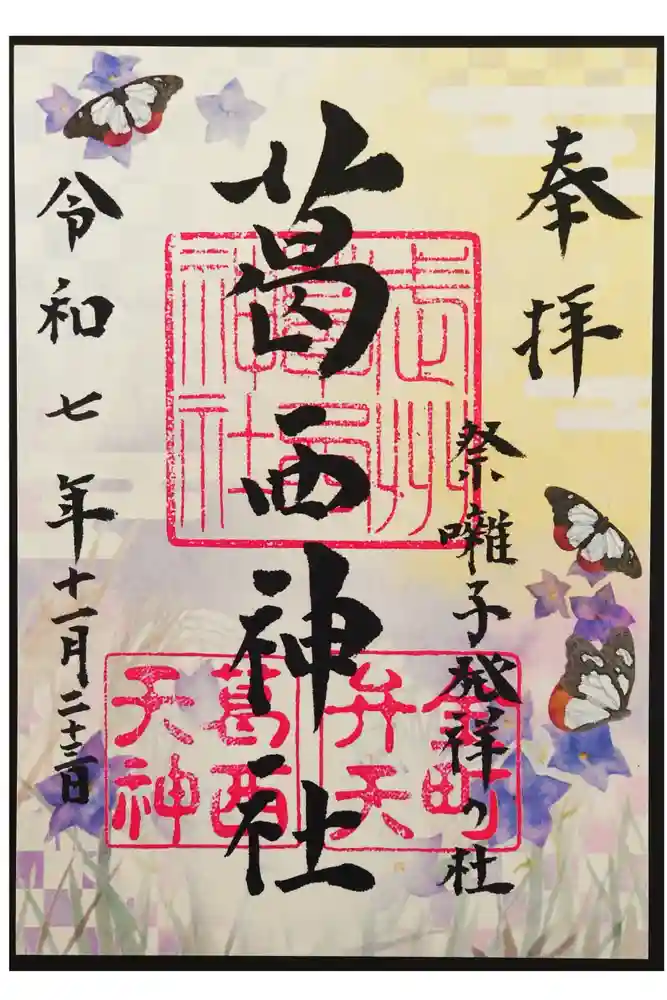 奉拝
祭囃子発祥の社
葛西神社
武州
葛西
神社
金町
弁天
葛西
天神
令和七年十一月二十三日